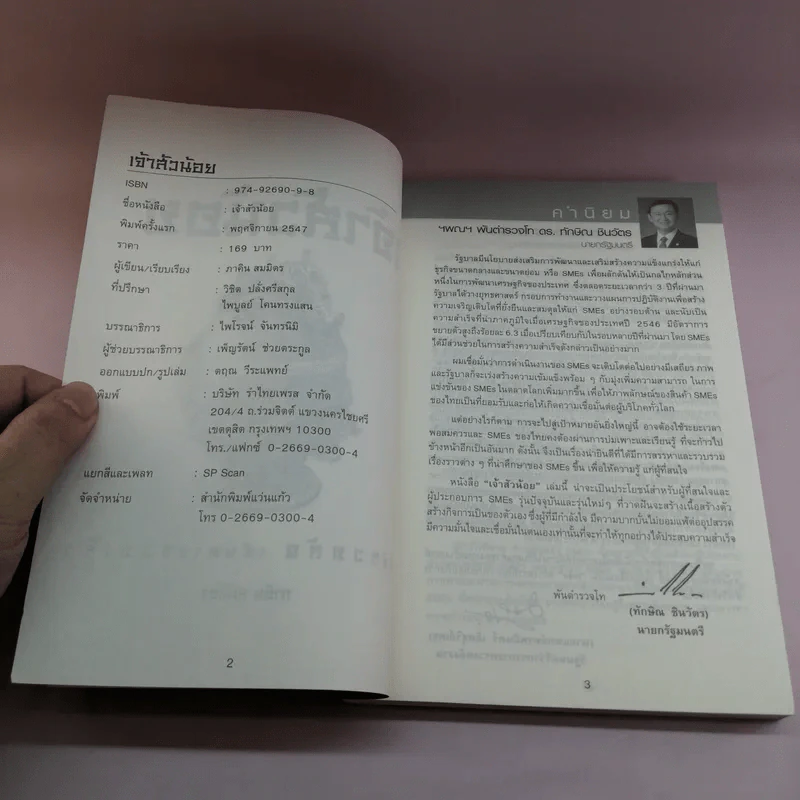 เจ้าสัวน้อย
ISBN : 974-92690-9-8
ชื่อหนังสือ : เจ้าสัวน้อย
พิมพ์ครั้งแรก : พฤศจิกายน 2547
ราคา : 169 บาท
ผู้เขียน/เรียบเรียง : ภาคิน สมมิตร
ที่ปรึกษา : วิชิต ปลั่งศรีสกุล
ไพบูลย์ โคนทรงแสน
บรรณาธิการ : ไพโรจน์ จันทรนิมิ
ผู้ช่วยบรรณาธิการ : เพ็ญรัตน์ ช่วยตระกูล
ออกแบบปก/รูปเล่ม : ดฤณ วีระแพทย์
พิมพ์ : บริษัท รำไทยเพรส จำกัด
204/4 ถ.ร่วมจิตต์ แขวงนครไชยศรี
เขตดุสิต กรุงเทพฯ 10300
โทร./แฟกซ์ 0-2669-0300-4
แยกสีและเพลท : SP Scan
จัดจำหน่าย : สำนักพิมพ์แว่นแก้ว
โทร 0-2669-0300-4
2
คำนิยม
ฯพณฯ พันตำรวจโท ดร. ทักษิณ ชินวัตร
นายกรัฐมนตรี
รัฐบาลมีนโยบายส่งเสริมการพัฒนาและเสริมสร้างความแข็งแกร่งให้แก่
ธุรกิจขนาดกลางและขนาดย่อม หรือ SMEs เพื่อผลักดันให้เป็นกลไกหลักส่วน
หนึ่งในการพัฒนาเศรษฐกิจของประเทศ ซึ่งตลอดระยะเวลากว่า 3 ปีที่ผ่านมา
รัฐบาลได้วางยุทธศาสตร์ กรอบการทำงานและวางแผนการปฏิบัติงานเพื่อสร้าง
ความเจริญเติบโตที่ยั่งยืนและสมดุลให้แก่ SMEs อย่างรอบด้าน และนับเป็น
ความสำเร็จที่น่าภาคภูมิใจเมื่อเศรษฐกิจของประเทศปี 2546 มีอัตราการ
ขยายตัวสูงถึงร้อยละ 6.3 เมื่อเปรียบเทียบกับในรอบหลายปีที่ผ่านมา โดย SMEs
ได้มีส่วนช่วยในการสร้างความสำเร็จดังกล่าวเป็นอย่างมาก
ผมเชื่อมั่นว่าการดำเนินงานของ SMEs จะเติบโตต่อไปอย่างมีเสถียร ภาพ
และรัฐบาลก็จะเร่งสร้างความเข้มแข็งพร้อม ๆ กับมุ่งเพิ่มความสามารถ ในการ
แข่งขันของ SMEs ในตลาดโลกเพิ่มมากขึ้น เพื่อให้ภาพลักษณ์ของสินค้า SMEs
ของไทยเป็นที่ยอมรับและก่อให้เกิดความเชื่อมั่นต่อผู้บริโภคทั่วโลก
แต่อย่างไรก็ตาม การจะไปสู่เป้าหมายอันยิ่งใหญ่นี้ อาจต้องใช้ระยะเวลา
พอสมควรและ SMEs ของไทยคงต้องผ่านการบ่มเพาะและเรียนรู้ ที่จะก้าวไป
ข้างหน้าอีกเป็นอันมาก ดังนั้น จึงเป็นเรื่องน่ายินดีที่ได้มีการสรรหาและรวบรวม
เรื่องราวต่าง ๆ ที่น่าศึกษาของ SMEs ขึ้น เพื่อให้ความรู้ แก่ผู้ที่สนใจ
หนังสือ "เจ้าสัวน้อย" เล่มนี้ น่าจะเป็นประโยชน์สำหรับผู้ที่สนใจและ
ผู้ประกอบการ SMEs รุ่นปัจจุบันและรุ่นใหม่ๆ ที่วาดฝันจะสร้างเนื้อสร้างตัว
สร้างกิจการเป็นของตัวเอง ซึ่งผู้ที่มีกำลังใจ มีความบากบั่นไม่ยอมแพ้ต่ออุปสรรค
มีความมั่นใจและเชื่อมั่นในตนเองเท่านั้นที่จะทำให้ทุกอย่างได้ประสบความสำเร็จ
พันตำรวจโท
(ทักษิณ ชินวัตร)
นายกรัฐมนตรี
3